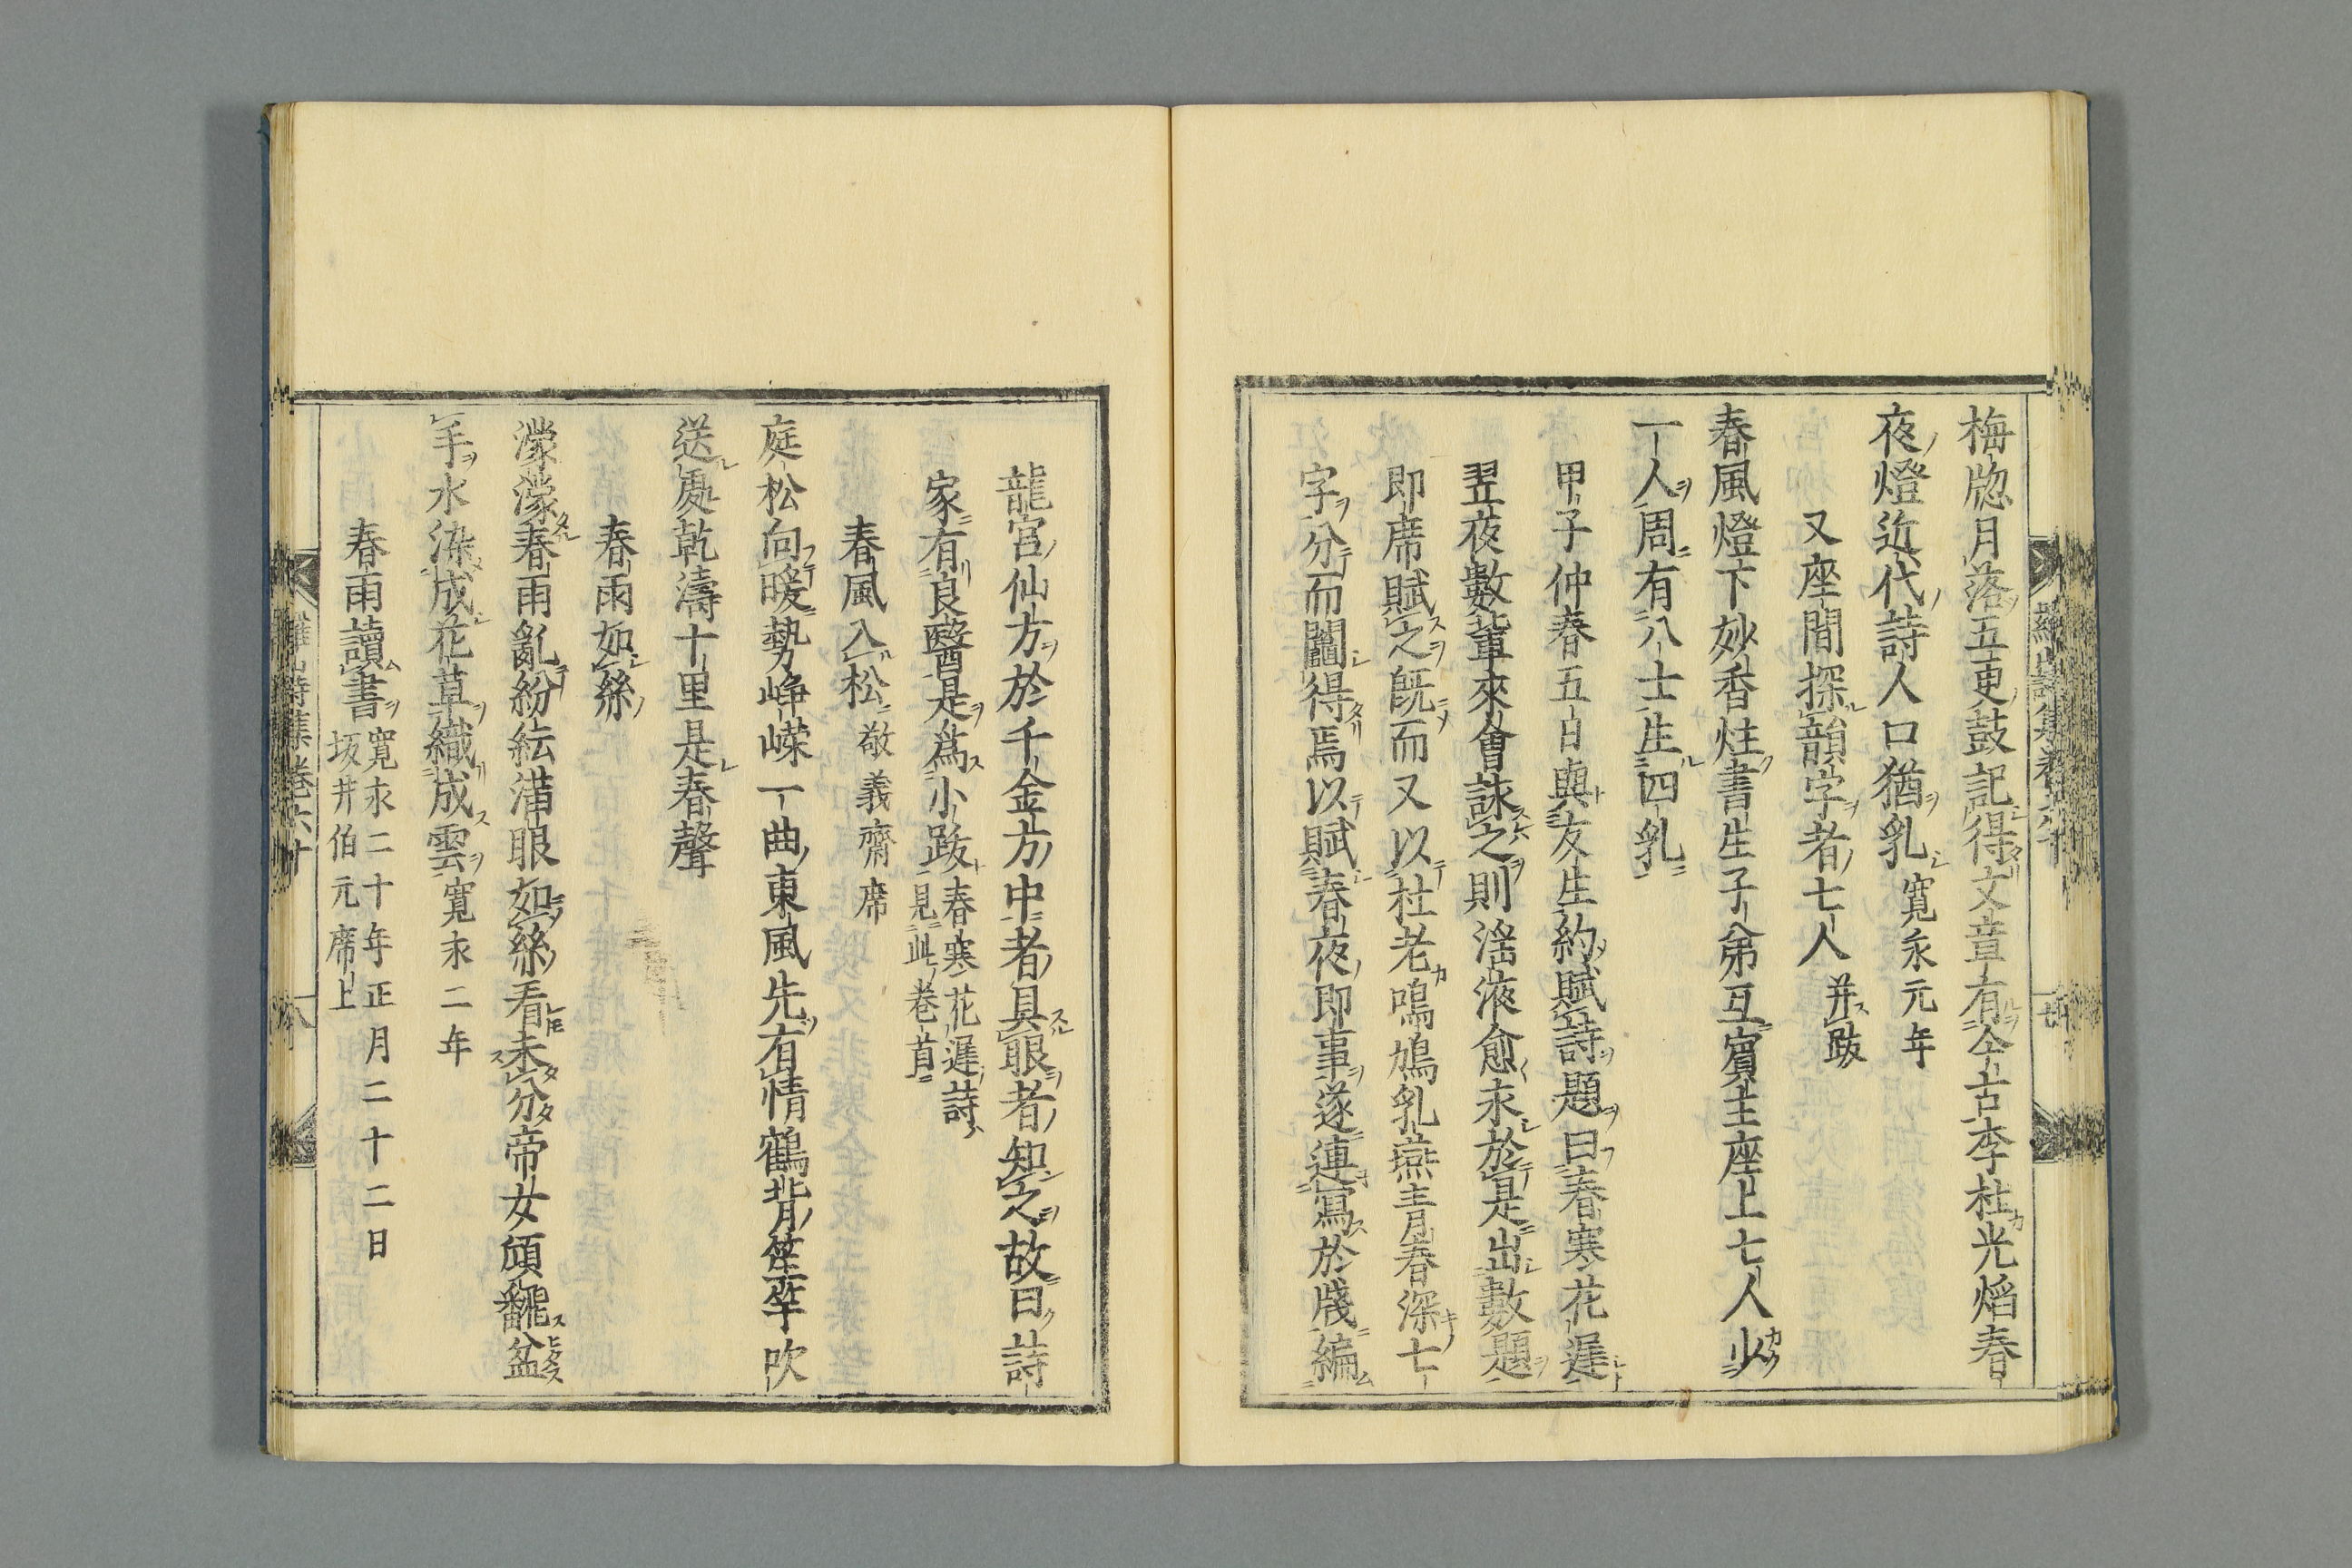 梅牕月落五更鼓記得文章有今古李杜光焰春
夜燈近代詩人口猶乳 寛永元年
又座間探韻字者七人 并跋
春風燈下妙香炷書生子弟互賓主座上七人少
一人周有八士生四乳
甲子仲春五日與友生約賦詩題曰春寒花遲
翌夜數輩來會詠之則滛液愈永於是出數題
即席賦之既而又以杜老鳴鳩乳燕青春深七
字分而鬮得焉以賦春夜即事遂連寫於牋編
龍宮仙方於千金方中者具眼者知之故曰詩
家有良醫是爲小跋 春寒花遲詩
見此卷首
春風入松 敬義齋席
庭松向暖勢崢嶸一曲東風先有情鶴背笙竽吹
送處乾濤十里是春聲
春雨如絲
濛濛春雨亂紛紜滿眼如絲看未分帝女頎飜盆
手水染成花草織成雲 寛永二年
春雨讀書 寛永二十年正月二十二日
坂井伯元席上
羅山詩集卷六十